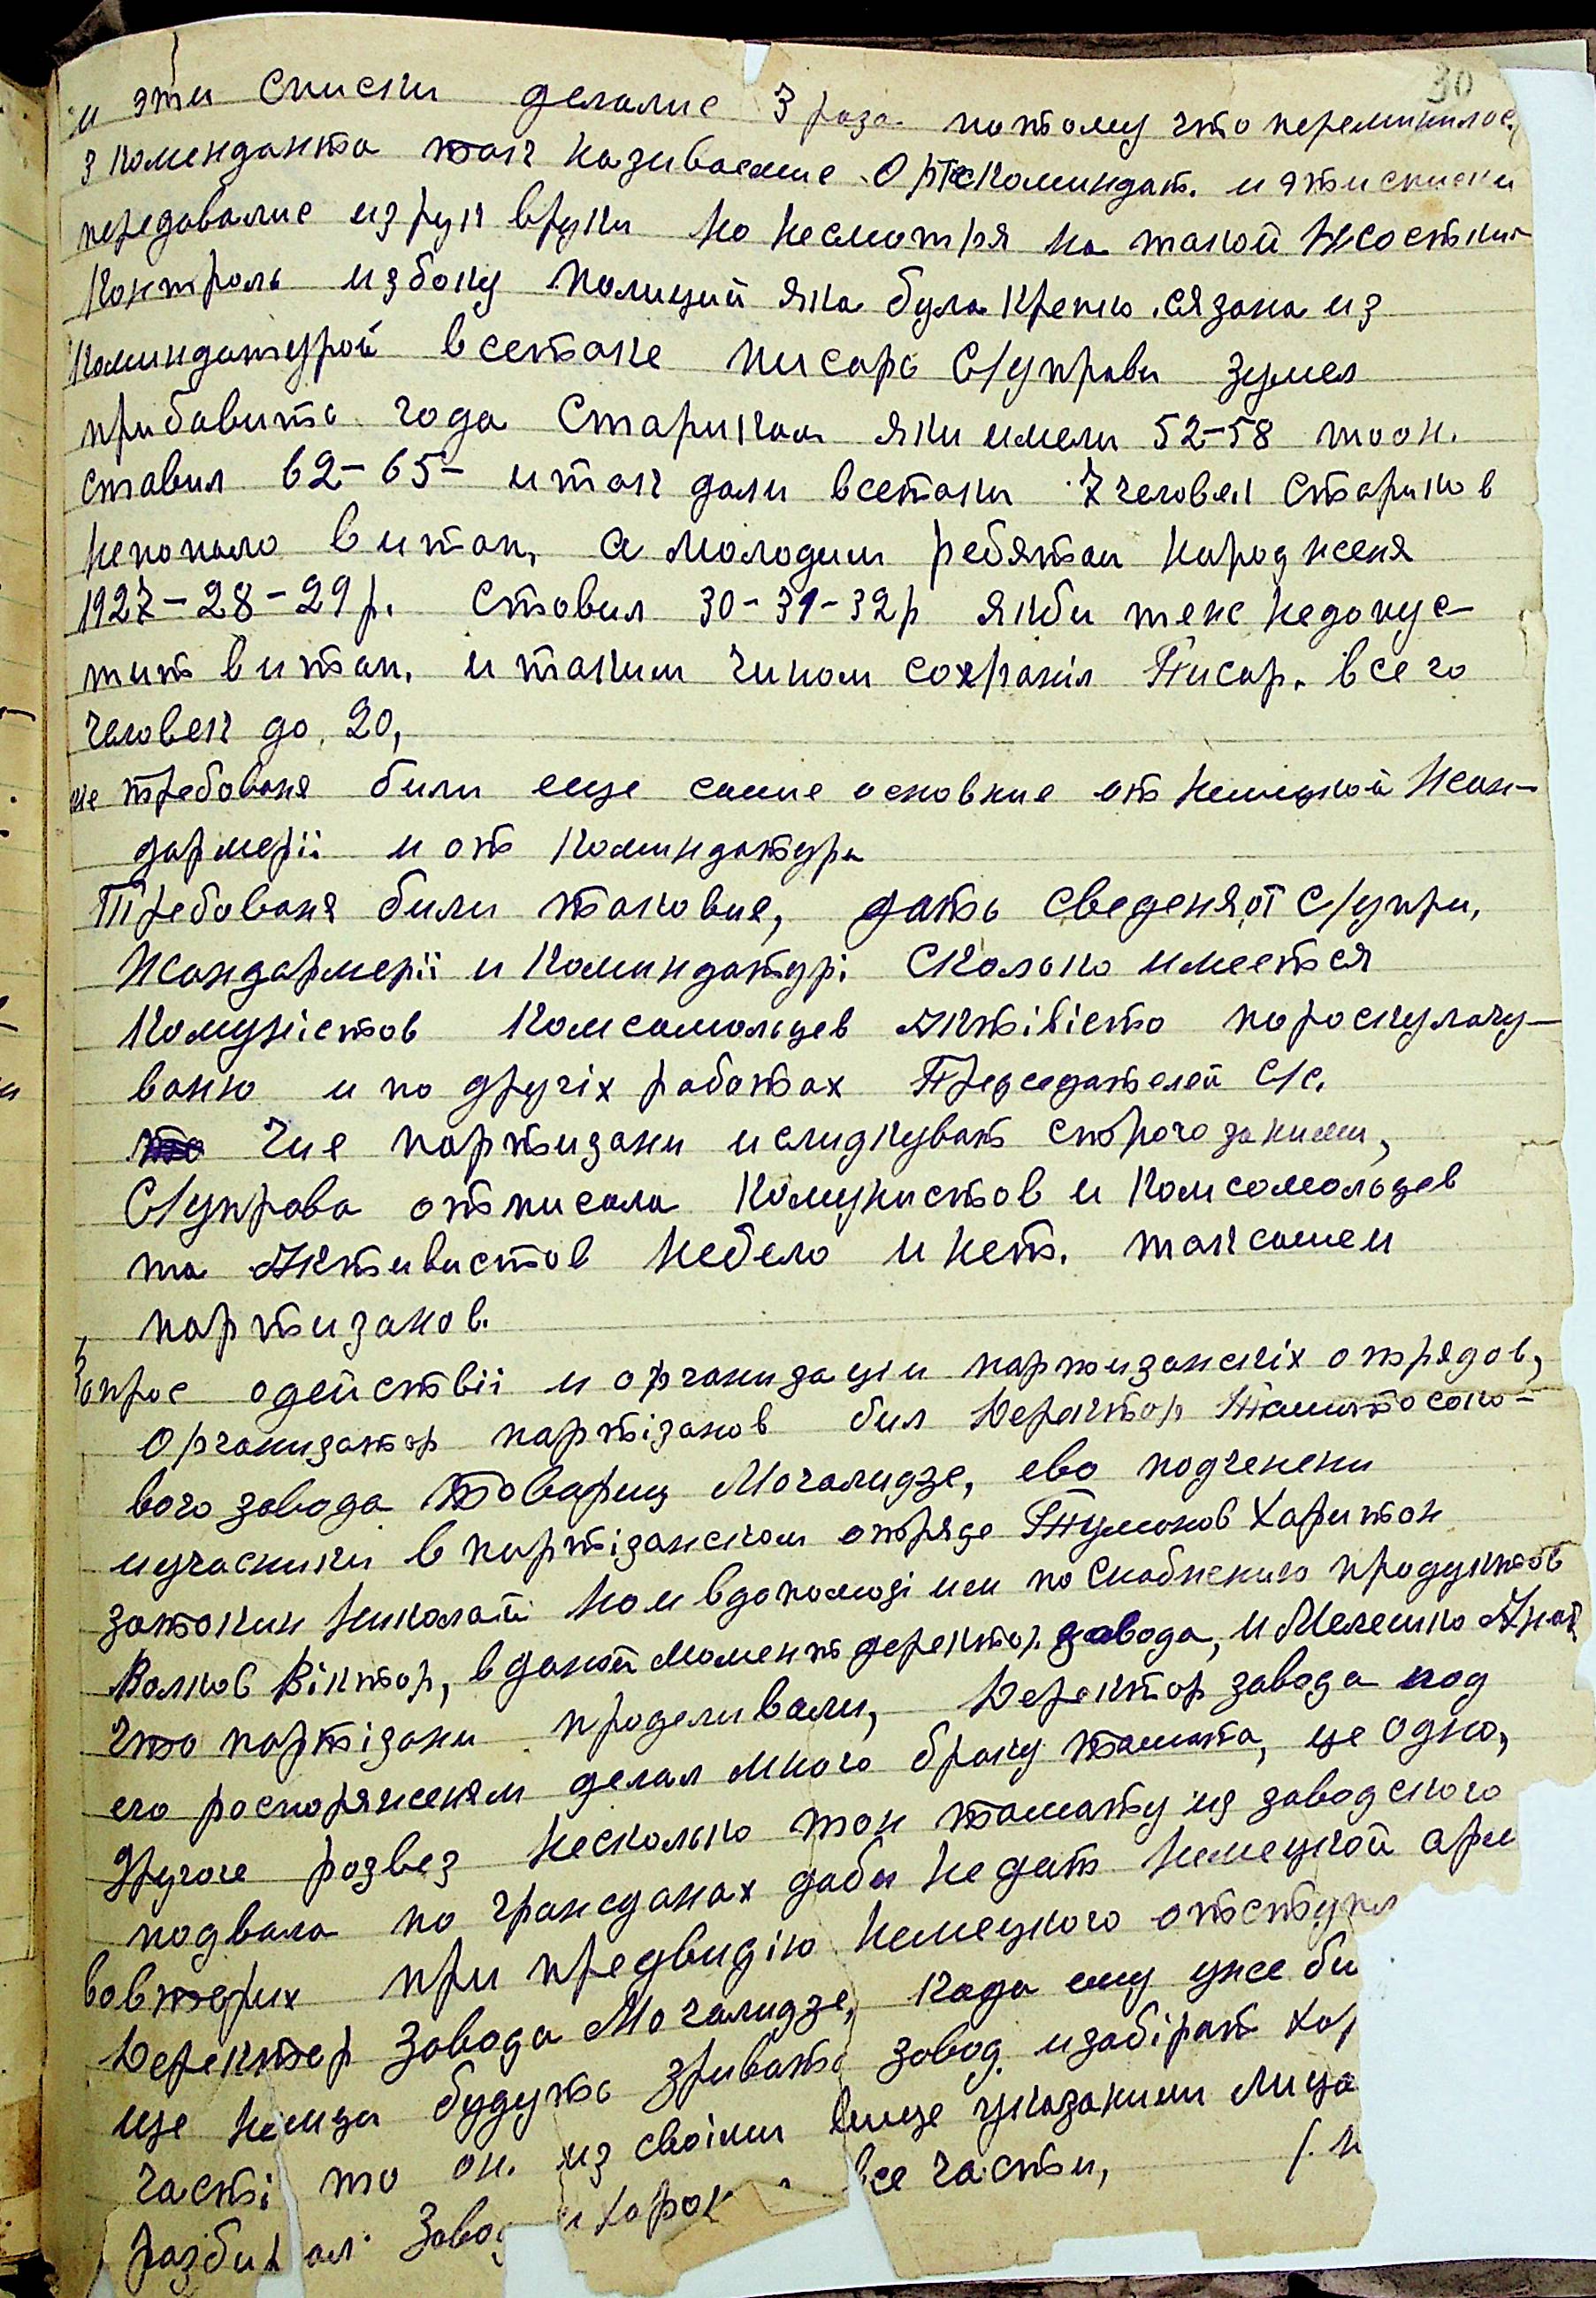 30
и эти списки делалис 3 раза потому что переминилос
3 коменданта так називаемие Ортскоминдат. и эти списки
передавалис из рук вруки но несмотря на такой жосткий
контроль избоку полиций яка була крепко сязана из
коминдатурой всетаке писарь С/управи зумел
прибавить года старикам яки имели 52-58 то он.
ставил 62-65- итак дали всетаки 7 человек стариков
непопало витап, а молодим ребятам народженя
1927-28-29р. ставил 30-31-32р якби теж недопус-
тит витап. и таким чином сохраніл Писар. всего
человек до 20,
требованя били еще самие основние от немецкой жан-
дармерії и от коминдатури
Требованя били таковие, дать сведеня от С/упри,
Жандармерії и коминдатурі сколько имеется
комуністов комсомольцев Актівісто пороскулачу-
ваню и по другіх работах Председателей С/с.
чие партизани и слидкуват строго заними,
С/управа отписала комунистов и комсомольцев
та Активистов небело и нет. таксамем
партизанов.
Вопрос одействії и организации партизанскіх отрядов,
Организатор партізанов бил Деректор Таматосоко-
вого завода товарищ Мочалидзе, ево подченени
иучасники в партізанском отряде Тумонов Харитон
затокин Николай ном вдопомозі им по снабжению продуктов
Волков Віктор, вданой момент деректор завода, и Мелешко Игнат
что партізани проделивали, Деректор завода под
его распоряженям делал много браку тамата, це одно,
другое розвез несколько тон тамату из заводского
подвала по гражданах даби недат немецкой арм
вовтерих при предвидію немецкого отступл
Деректор завода Мочалидзе, када ему уже би
ще немци будуть зривать завод изабірат хор
часті то он. из своїми више указаними лица
разби ал завод и хорош все части,